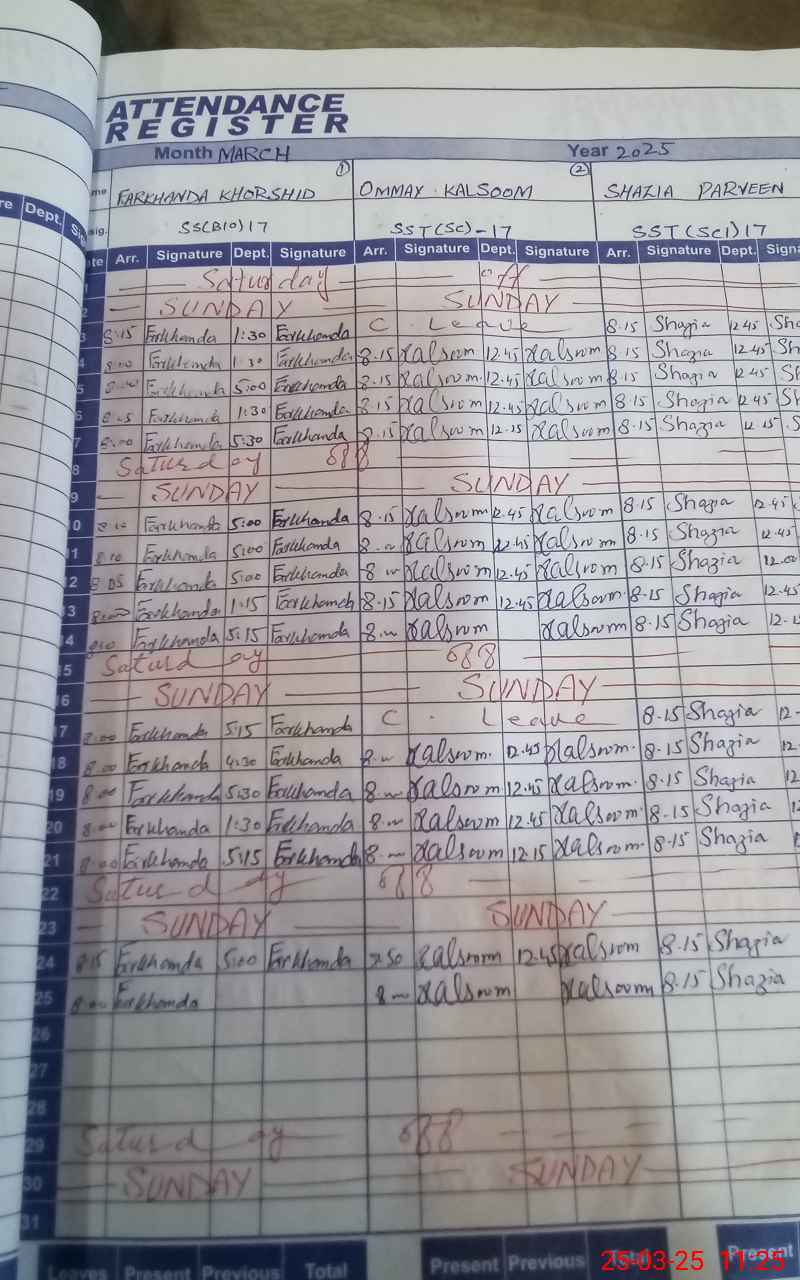 ATTENDANCE
REGISTER
Month MARCH Year 2025
me FARKHANDA KHORSHID ① OMMAY KALSOOM ② SHAZIA PARVEEN
sig. SS(BIO)17 SST(SC)-17 SST(SCI)17
re Dept. Si
te Arr. Signature Dept. Signature Arr. Signature Dept. Signature Arr. Signature Dept. Signa
1 Saturday off
2 SUNDAY SUNDAY
3 8:15 Farkhanda 1:30 Farkhanda C. Leave 8.15 Shazia 12.45 Sha
4 8:00 Farkhanda 1:30 Farkhanda 8.15 Kalsoom 12.45 Kalsoom 8.15 Shazia 12.45 Sh
5 Farkhanda 5:00 Farkhanda 8.15 Kalsoom 12.45 Kalsoom 8.15 Shazia 12.45 Sh
6 Farkhanda 1:30 Farkhanda 8.15 Kalsoom 12.45 Kalsoom 8.15 Shazia 12.45 Sh
7 8:00 Farkhanda 5:30 Farkhanda 8.15 Kalsoom 12.15 Kalsoom 8.15 Shazia 12.15 S
8 Saturday off
9 SUNDAY SUNDAY
10 8:10 Farkhanda 5:00 Farkhanda 8.15 Kalsoom 12.45 Kalsoom 8.15 Shazia 12.45
11 8:10 Farkhanda 5:00 Farkhanda 8. Kalsoom 12.45 Kalsoom 8.15 Shazia 12.45
12 8:05 Farkhanda 5:00 Farkhanda 8. Kalsoom 12.45 Kalsoom 8.15 Shazia
13 8:00 Farkhanda 1:15 Farkhanda 8.15 Kalsoom 12.45 Kalsoom 8.15 Shazia 12.45
14 Farkhanda 5:15 Farkhanda 8. Kalsoom Kalsoom 8.15 Shazia 12.1
15 Saturday off
16 SUNDAY SUNDAY
17 8:00 Farkhanda 5:15 Farkhanda C. Leave 8.15 Shazia 12.
18 8:00 Farkhanda 4:30 Farkhanda 8. Kalsoom 12.45 Kalsoom 8.15 Shazia 12.
19 8:00 Farkhanda 5:30 Farkhanda 8. Kalsoom 12.45 Kalsoom 8.15 Shazia 12
20 8:00 Farkhanda 1:30 Farkhanda 8. Kalsoom 12.45 Kalsoom 8.15 Shazia 12
21 8:00 Farkhanda 5:15 Farkhanda 8. Kalsoom 12.15 Kalsoom 8.15 Shazia 12
22 Saturday off
23 SUNDAY SUNDAY
24 8:15 Farkhanda 5:00 Farkhanda 7.50 Kalsoom 12.45 Kalsoom 8.15 Shazia
25 8:00 Farkhanda 8. Kalsoom Kalsoom 8.15 Shazia
26
27
28
29 Saturday off
30 SUNDAY SUNDAY
31
Leaves Present Previous Total Present Previous Total Present
25-03-25 11:25